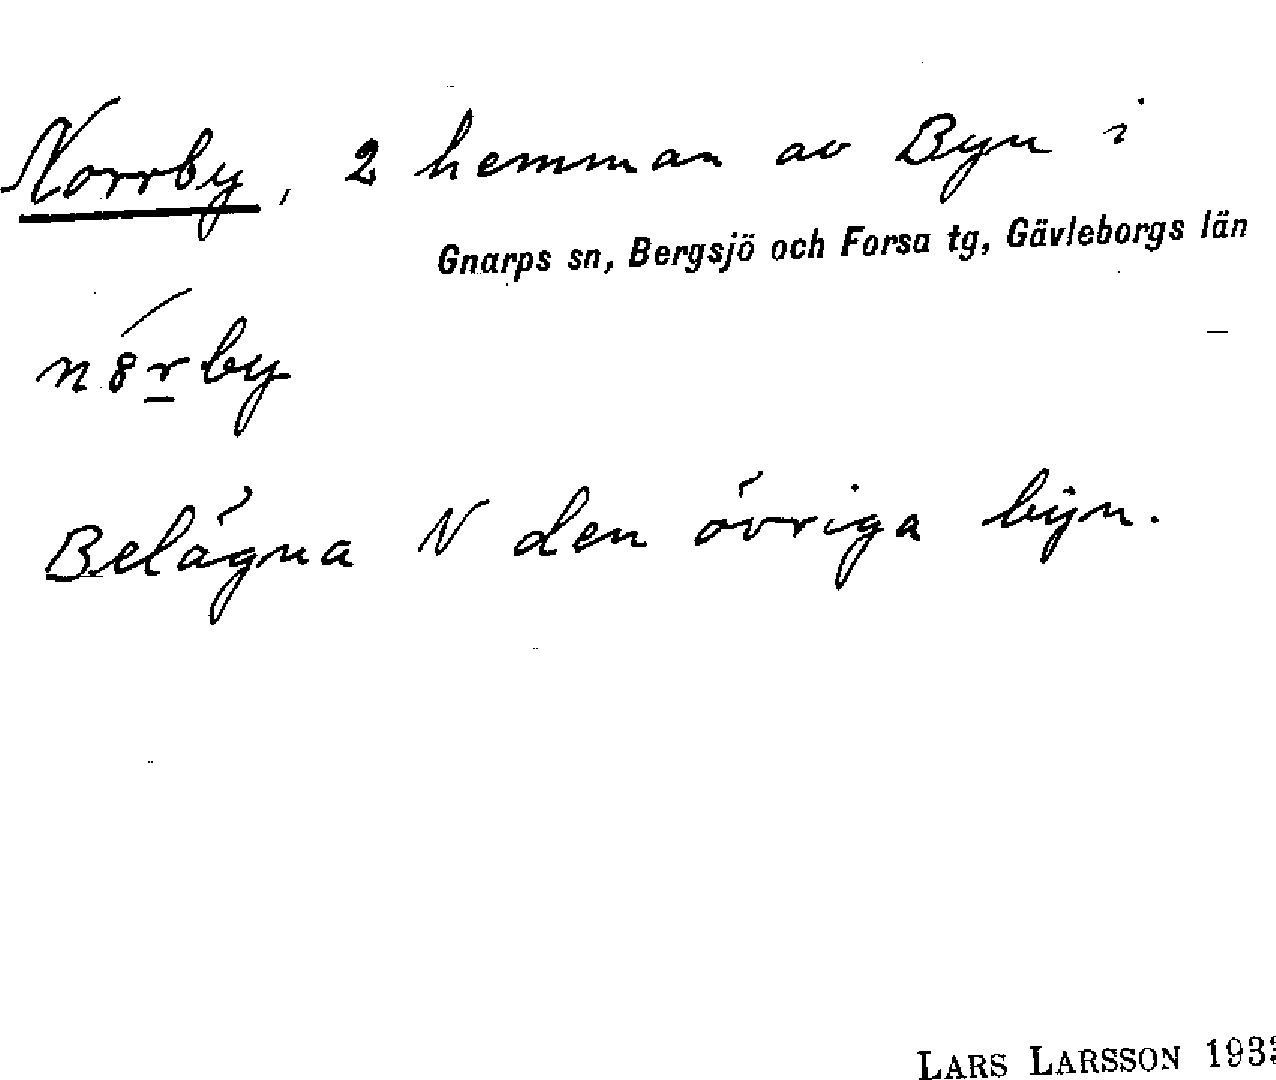 Norrby, 2 hemman av Byn i
Gnarps sn, Bergsjö och Forsa tg, Gävleborgs län
Belägna N den övriga byn.
LARS LARSSON